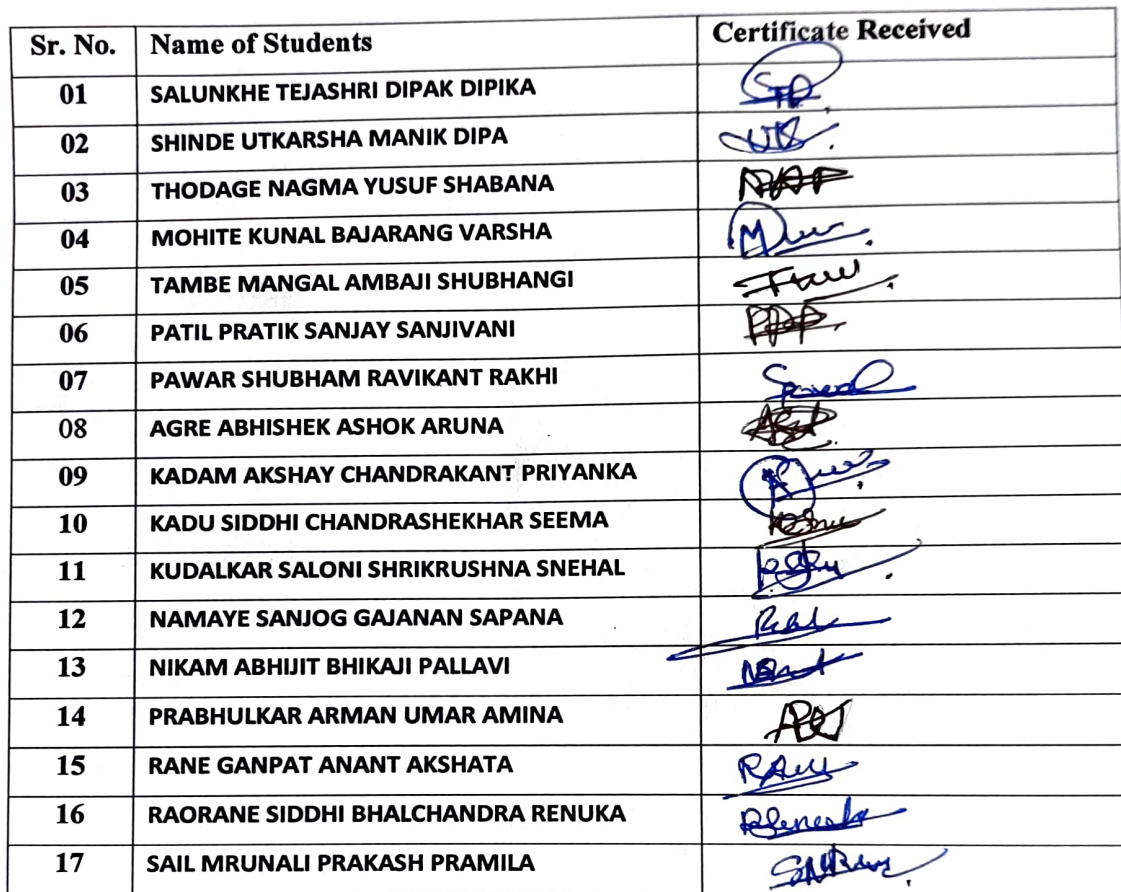 Sr. No. Name of Students Certificate Received
01 SALUNKHE TEJASHRI DIPAK DIPIKA
02 SHINDE UTKARSHA MANIK DIPA
03 THODAGE NAGMA YUSUF SHABANA
04 MOHITE KUNAL BAJARANG VARSHA
05 TAMBE MANGAL AMBAJI SHUBHANGI
06 PATIL PRATIK SANJAY SANJIVANI
07 PAWAR SHUBHAM RAVIKANT RAKHI
08 AGRE ABHISHEK ASHOK ARUNA
09 KADAM AKSHAY CHANDRAKANT PRIYANKA
10 KADU SIDDHI CHANDRASHEKHAR SEEMA
11 KUDALKAR SALONI SHRIKRUSHNA SNEHAL
12 NAMAYE SANJOG GAJANAN SAPANA
13 NIKAM ABHIJIT BHIKAJI PALLAVI
14 PRABHULKAR ARMAN UMAR AMINA
15 RANE GANPAT ANANT AKSHATA
16 RAORANE SIDDHI BHALCHANDRA RENUKA
17 SAIL MRUNALI PRAKASH PRAMILA